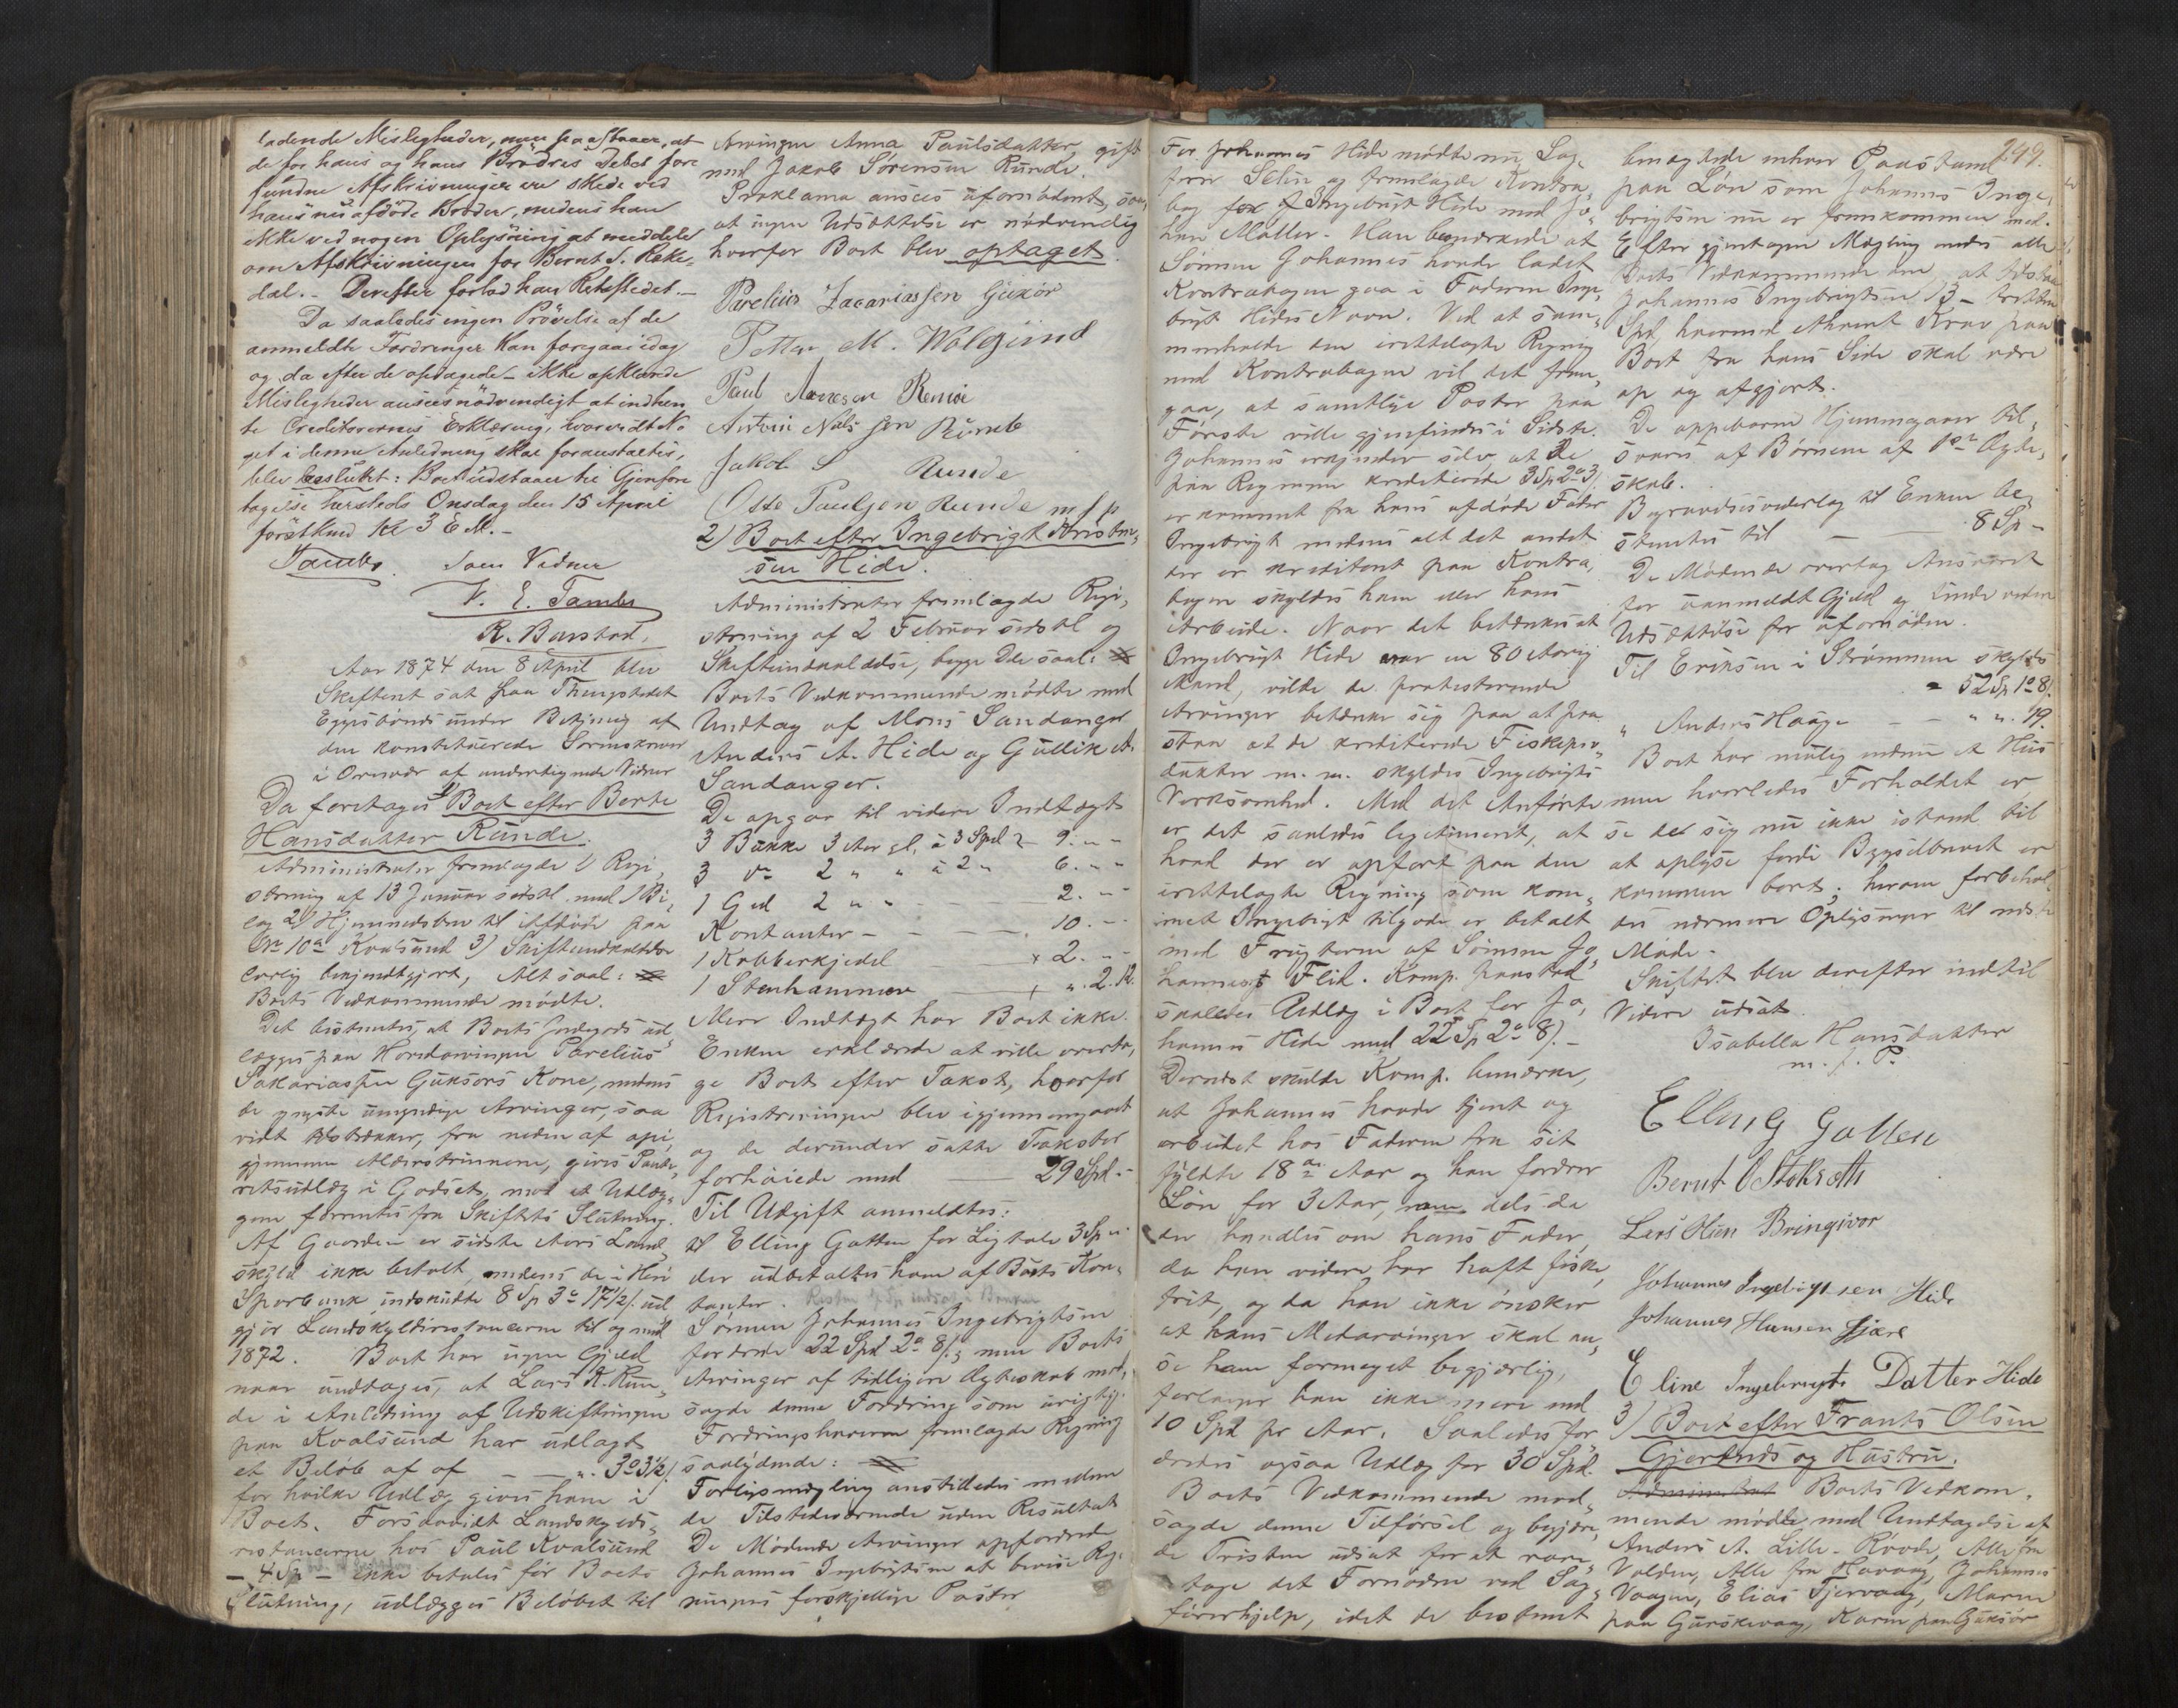 ladende Misligheder, men paastaaer, at
de for hans og hans Brødres Debet fore
fundne Afskrivninger ere skede ved
hans nu afdøde Broder, medens han
ikke ved nogen Oplysning at meddele
om Afskrivningen for Bernt S. Hake-
dal. - Derefter forlod han Retsstedet. -
Da saaledes ingen Prøvelse af de
anmeldte Fordringer kan foregaa idag
og da efter de opdagede - ikke opklarede
Misligheder ansees nødvendigt at indhen
te Creditorernes Erklæring, hvorvidt No
get i denne Anledning skal foranstaltes,
blev besluttet: Boet udstaaer til Gjenfore
tagelse hersteds Onsdag den 15 April
førstkmd Kl 3 E M. -
Som Vidner
R. Barstad.
Aar 1874 den 8 April blev
Skifteret sat paa Thingstedet
Eggesbønes under Betjening af
den konstituerede Sorenskriver
i af undertegnede Vidner
Da foretages 1) Boet efter Berte
Hansdatter Runde.
Administrator fremlagde 1) Regi-
strering af 13 Januar sidstl. med 1 Bi-
lag 2) Hjemmelsbrev til afdøde paa
No 10a Kvalsund 3) Skifteindkaldelse
lovlig bekjendtgjort, Alt saal:
Boets Vedkommende mødte.
Det bestemtes, at Boets Jordegods ud-
lægges paa Hovedarvingen Parelius
Sakariassen Guksørs Kone, medens
de yngste umyndige Arvinger, saa
vidt tilstrækker, fra neden af opi-
gjennem Alderstrinnene, gives Pante-
retsudlæg i Godset, mod at Udlæg-
gene forrentes fra Skiftets Slutning.
Af Gaarden er sidste Aars Land-
skyld ikke betalt, medens de i Herø
Sparbank indskudte 8 Sp 3o 17½ s. ud
gjør Landskyldrestancerne til og med
1872. Boet har ingen Gjeld
naar undtages, at Lars A. Run-
de i Anledning af Udskiftningen
paa Kvalsund har udlagt
et Beløb af af - - „. 3o 3½ s.
for hvilke Udlæg gives ham i
Boet. Forsaavidt Landskylds-
restancerne hos Paul Kvalsund
- 4 Sp - ikke betales før Boets
Slutning, udlægges Beløbet til
Arvingen Anna Paulsdatter, gift
med Jakob Sørensen Runde.
Proklama ansees ufornødent, saa
at ingen Udsættelse er nødvendig
hvorfor Boet blev optaget.
Parelius Zacariassen Guxør
Petter M. Wolgsund
Paul Arnesen Remøe
Runde
Jakob S Runde
Oste Paulsen Runde m f p
2) Boet efter Ingebrigt Kristen-
sen Hide.
Administrator fremlagde Regi-
strering af 2 Februar sidstl og
Skifteindkaldelse, begge Dele saal:
Boets Vedkommende mødte med
Undtag af Mons Sandanger
Anders A. Hide og Gullik A.
Sandanger.
De opgav til videre Indtægt
3 Bukke 3 Aar gl. à 3 Spd 9. „ -
3 do 2 „ „ à 2 „ 6. „ -
1 Ged 2 „ „ - 2. „ -
Kontanter - - - - 10. - -
1 Kobberkjedel 2. „ -
1 Stenhammer „. 2. 12.
Mere Indtægt har Boet ikke.
Enken erklærede at ville overta-
ge Boet efter Takst, hvorfor
Registreringen blev igjennemgaaet
og de derunder satte Takster
forhøiede med 29 Spd. -
Til Udgift anmeldtes:
til Elling Gotten for Ligtale 3 Sp „
der udbetaltes ham af Boets Kon-
tanter. Resten 7 Sp indsat i Banken
Sønnen Johannes Ingebrigtsen
fordrede 22 Spd 2o 8 s.; men Boets
Arvinger af tidligere Ægteskab mod-
sagde denne Fordring som urigtig.
Fordringshaveren fremlagde Regning
saalydende:
Forligsmægling anstilledes mellem
de Tilstedeværende uden Resultat
De Mødende Arvinger opfordrede
Johannes Ingebrigtsen at bevise Reg-
ningens forskjellige Poster
For Johannes Hide mødte nu Sag-
fører Selin og fremlagde Kontra-
bog for Ingebrigt Hide med Jo-
han Møller. Han bemærkede at
Sønnen Johannes havde ladet
Kontrabogen gaa i Faderen Inge-
brigt Hides Navn. Ved at sam-
menholde den irettelagte Regning
med Kontrabogen vil det frem-
gaa, at samtlige Poster paa
Første ville gjenfindes i Sidste.
Johannes erkjender selv at De
paa Regningen krediterede 3 Sp 2o 3 s.
er kommet fra hans afdøde Fader
Ingebrigt medens alt det andet
der er krediteret paa Kontra-
bogen skyldes ham eller hans
Arbeide. Naar det betænkes at
Ingebrigt Hide var en 80 Aarig
Mand, vilde de protesterende
Arvinger betænke sig paa at paa
staa at de krediterede Fiskepro-
dukter m. m. skyldes Ingebrigts
Virksomhed. Med det Anførte
er det saaledes legitimeret, at
hvad der er opført paa den
irettelagte Regning som kom-
met Ingebrigt tilgode er betalt
med Frugterne af Sønnen Jo-
hannes's Flid. Komp. paastod
saaledes Udlæg i Boet for Jo-
hannes Hide med 22 Sp 2o 8 s. -
Dernæst skulde Komp. bemærke,
at Johannes havde tjent og
arbeidet hos Faderen fra sit
fyldte 18de Aar og han fordrer
Løn for 3 Aar, men dels da
der handles om hans Fader,
da han videre har haft fiske-
frit, og da han ikke ønsker
at hans Medarvinger skal an-
se ham formeget begjærlig,
forlanger han ikke mere end
10 Spd pr Aar. Saaledes for
dredes ogsaa Udlæg for 30 Spd.
Boets Vedkommende mod-
sagde denne Tilførsel og begjære-
de Tristen udsat for at vare-
tage det Fornødne ved Sag-
førerhjelp, idet de bestemt
249.
benegtede enhver Paastand
paa Løn som Johannes Inge-
brigtsen nu er fremkommen med.
Efter gjentagen Mægling enedes alle
Boets Vedkommende om at tilstaa
Johannes Ingebrigtsen 13 - tretten
Spd, hvormed ethvert Krav paa
Boet fra hans Side skal være
op og afgjort.
De oppebaarne Hjemmegaver til-
svares af Børnene af 1ste Ægte-
skab.
Begravelsesvederlag til Enken be-
stemtes til - 8 Sp -
De Mødende overtog Ansvaret
for uanmeldt Gjeld og finde videre
Udsættelse for ufornøden.
Til Eriksen i Strømmen skyldes
- 52 Sp 1o 8 s.
„ Anders Haage - - „ „. 19.
Boet har mulig endnu et Hus
men hvorledes Forholdet er
se de sig nu ikke istand til
at oplyse fordi Bygselbrevet er
kommen bort; herom forbehol-
des nærmere Oplysninger til næste
Møde. -
Skiftet blev derefter indtil
Videre udsat.
Isabella Hansdatter
m. f. P.
Elling Gotten
Bernt O Stokseth
Lars Hien Bringsvor
Johannes Ingebrigtsen Hide
Johannes Hansen
Eline Ingebrigts Datter Hide
3) Boet efter Frants Olsen
Gjerdnes og Hustru.
Boets Vedkom-
mende mødte med Undtagelse af
Anders A. Lille-Røvde, Alle fra
Volden, Alle fra Havaag, Johannes
Vaagen, Elias Tjervaag, Maren
paa Gurskevaag, Karen paa Guksør